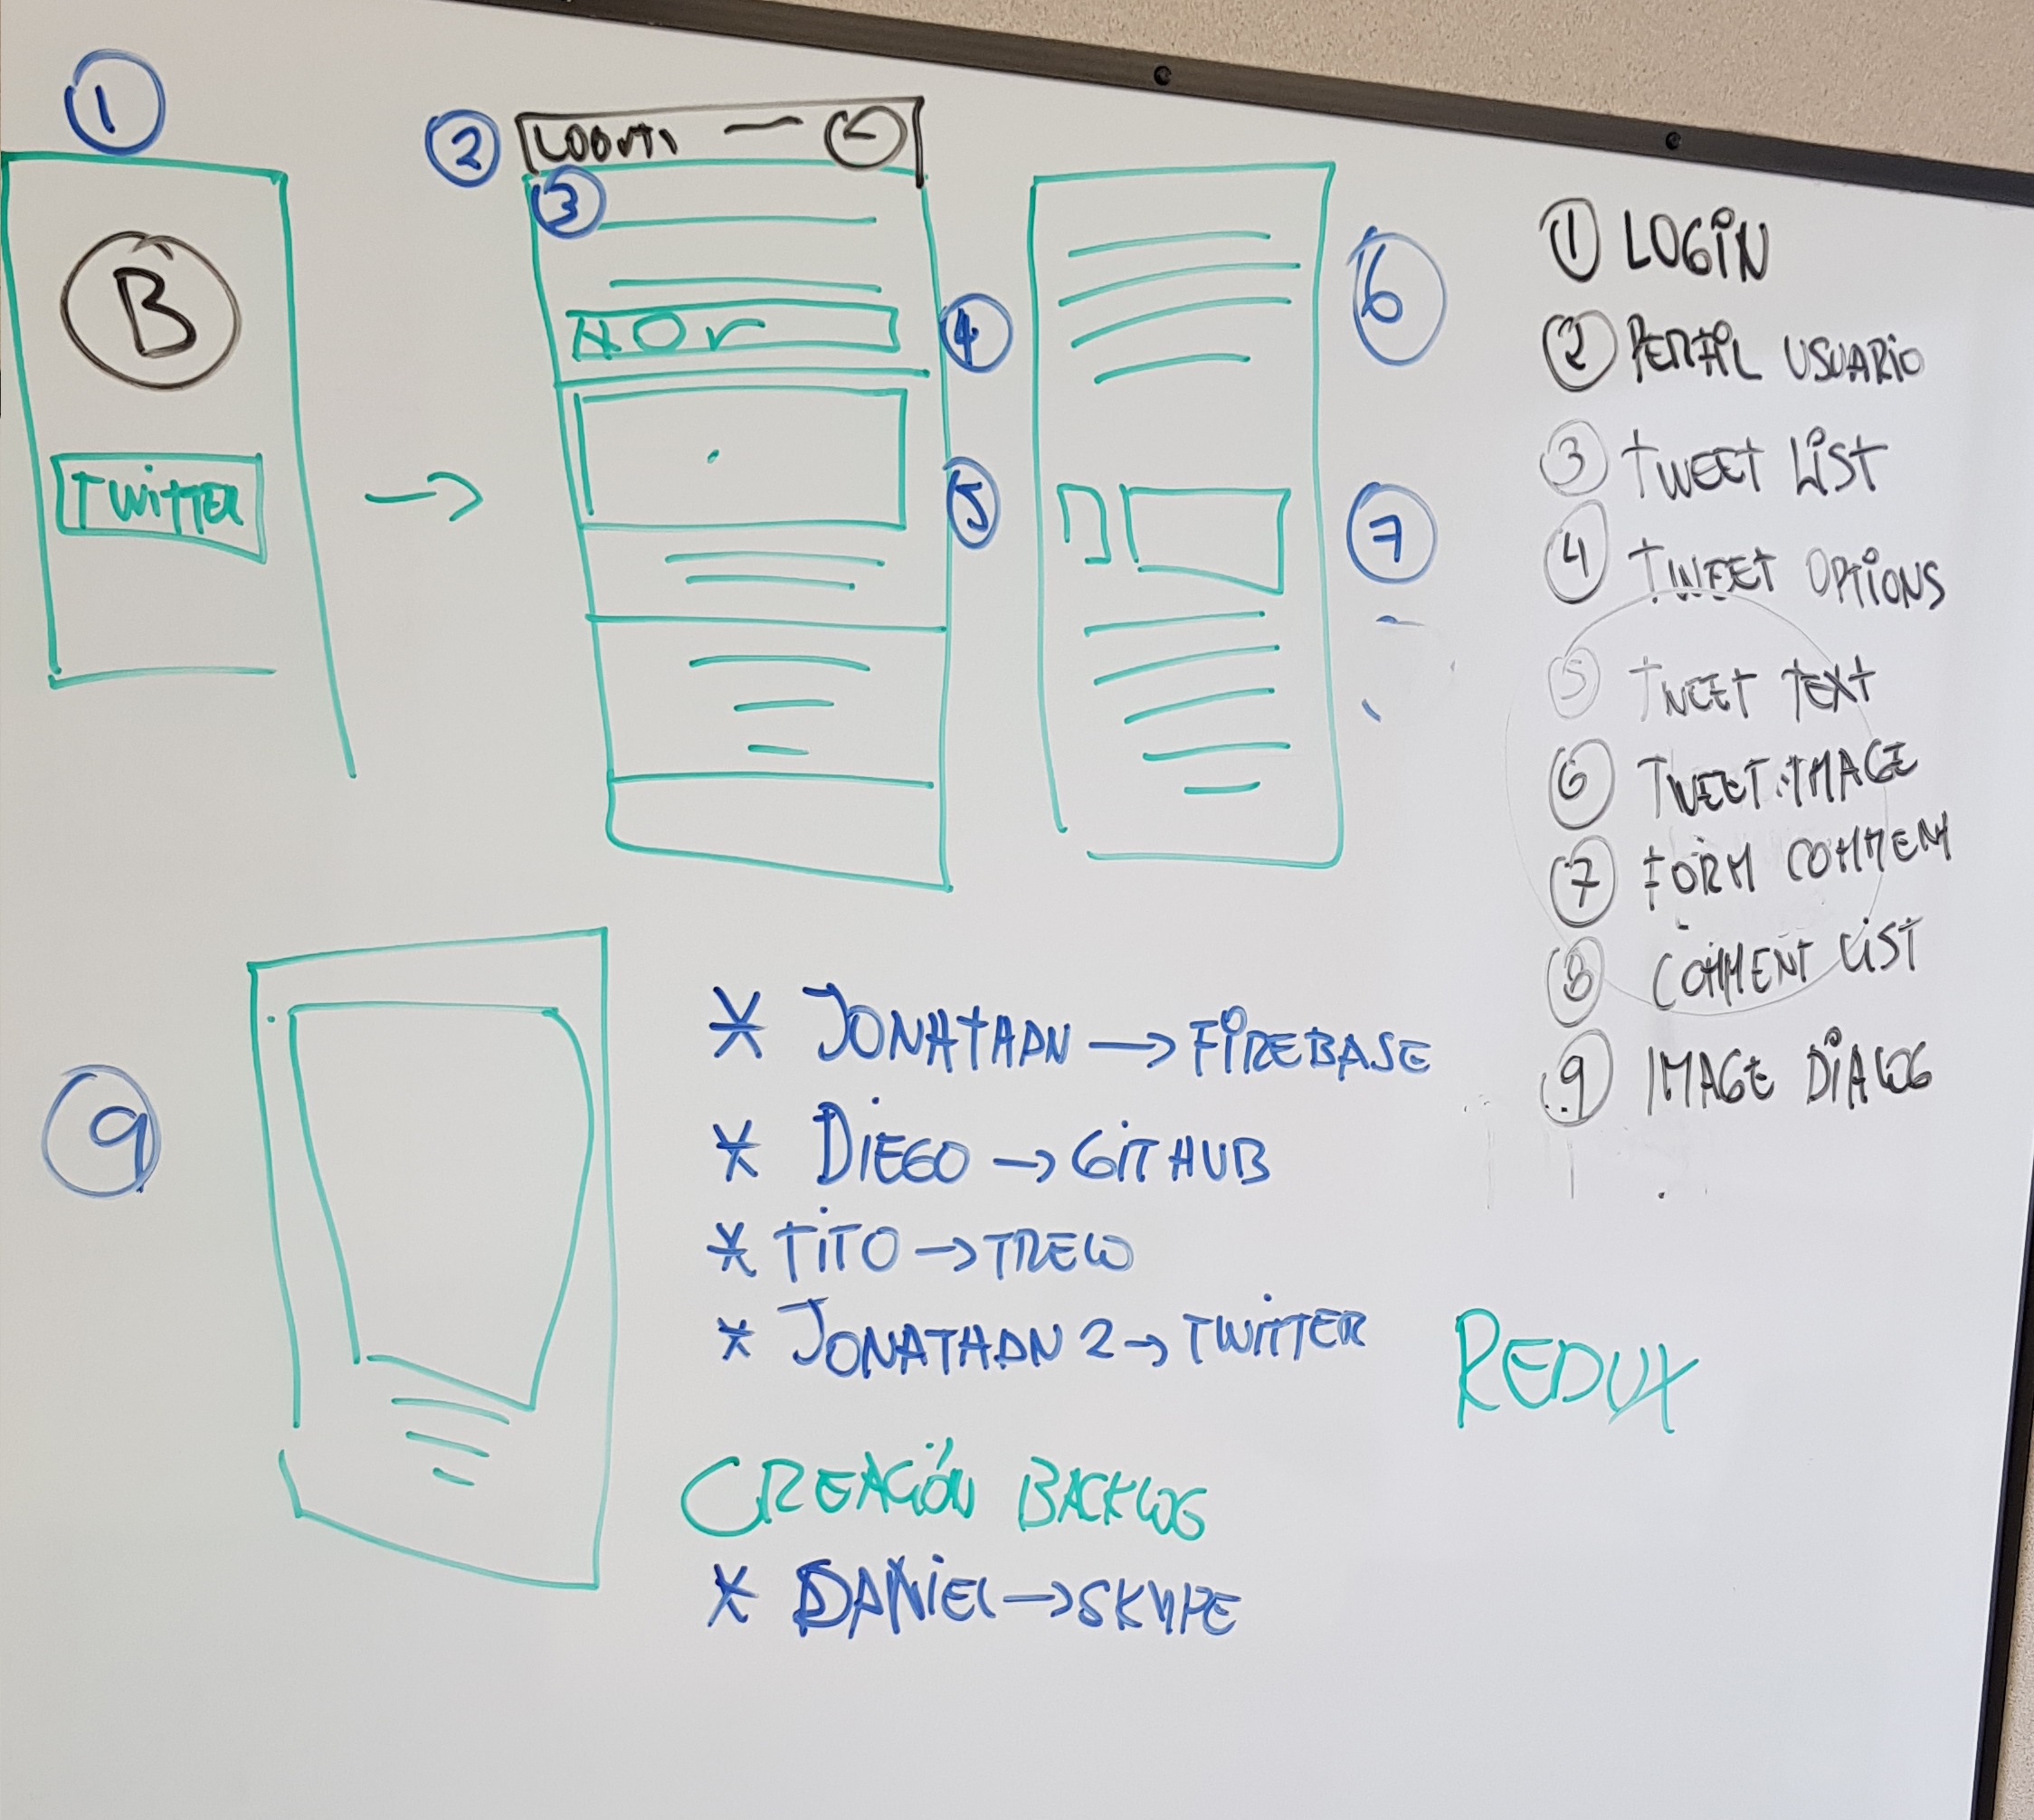 1
2
3
B
TWITTER
4
5
6
7
① LOGIN
② PERFIL USUARIO
③ TWEET LIST
④ TWEET OPTIONS
⑤ TWEET TEXT
⑥ TWEET IMAGE
⑦ FORM COMMEN
⑧ COMMENT LIST
⑨ IMAGE DIALOG
9
* JONATHAN → FIREBASE
* DIEGO → GITHUB
* TITO → TRELLO
* JONATHAN 2 → TWITTER
REDUX
CREACIÓN BACKLOG
* DANIEL → SKYPE